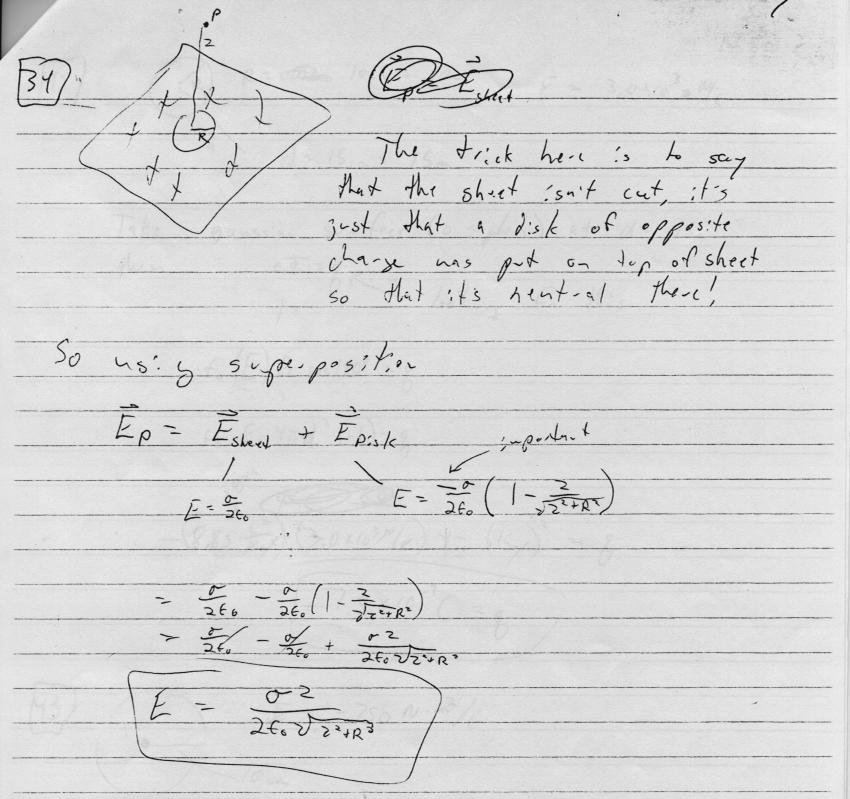 34
P
z
R
E⃗_P = E⃗_sheet
The trick here is to say
that the sheet isn't cut, it's
just that a disk of opposite
charge was put on top of sheet
so that it's neutral there!
So using superposition
E⃗_P = E⃗_sheet + E⃗_Disk
important
E = σ/2ε₀
E = -σ/2ε₀ (1 - z/√(z²+R²))
= σ/2ε₀ - σ/2ε₀ (1 - z/√(z²+R²))
= σ/2ε₀ - σ/2ε₀ + σz/2ε₀√(z²+R²)
E = σz/2ε₀√(z²+R³)